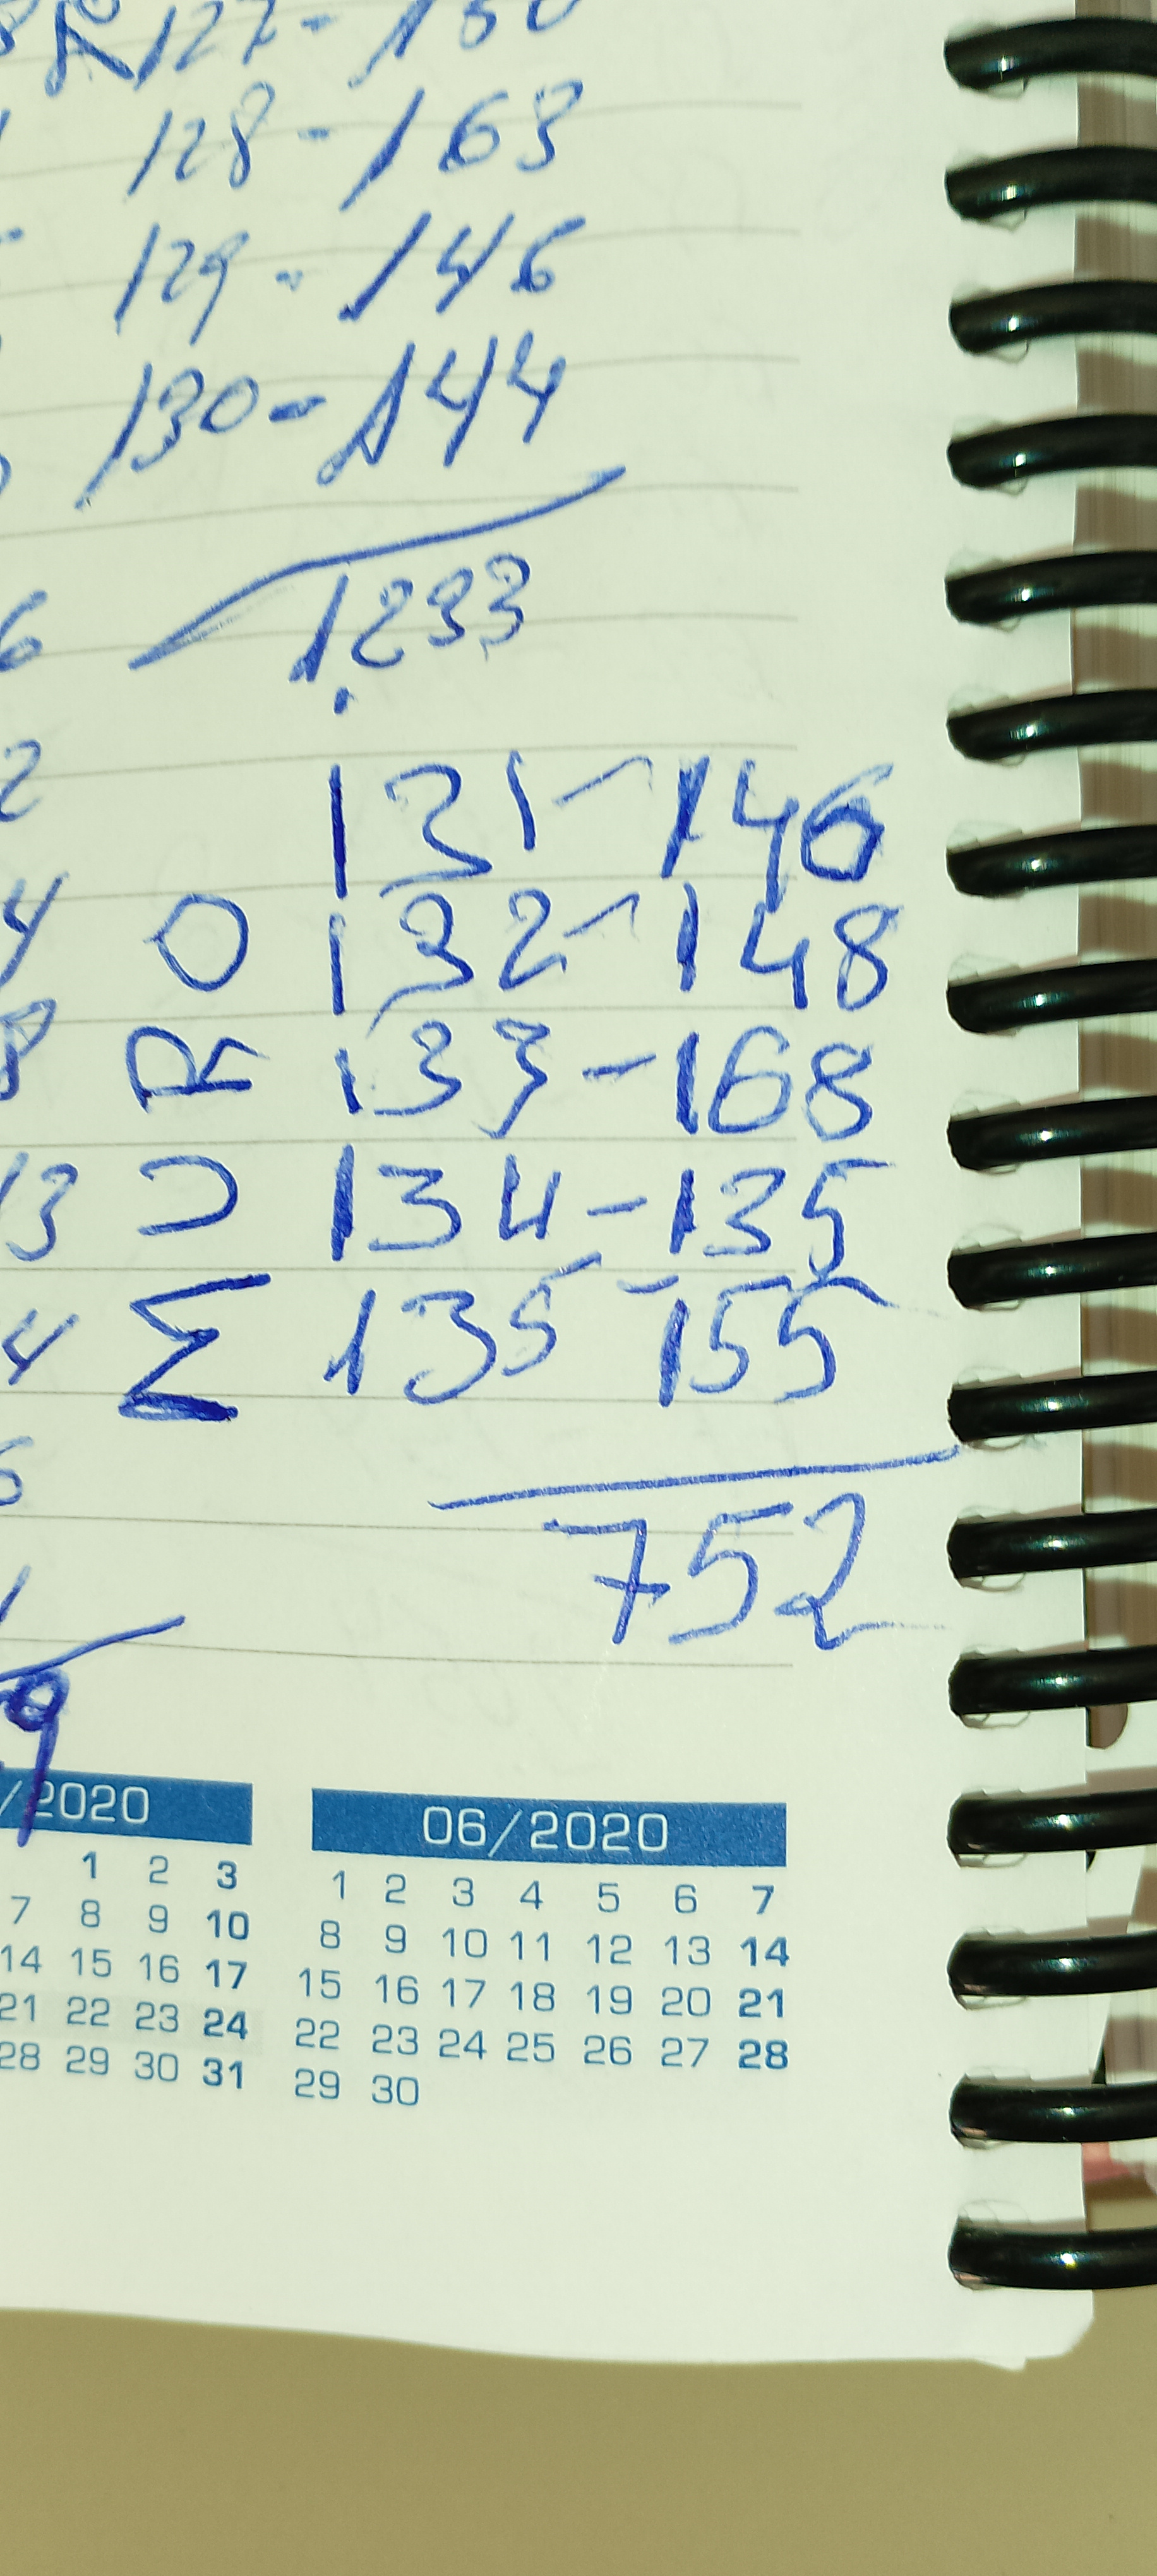 127-150
128-163
129-146
130-144
1233
131-146
O 132-148
R 133-168
134-135
Σ 135-155
752
/2020
1 2 3
7 8 9 10
14 15 16 17
21 22 23 24
28 29 30 31
06/2020
1 2 3 4 5 6 7
8 9 10 11 12 13 14
15 16 17 18 19 20 21
22 23 24 25 26 27 28
29 30